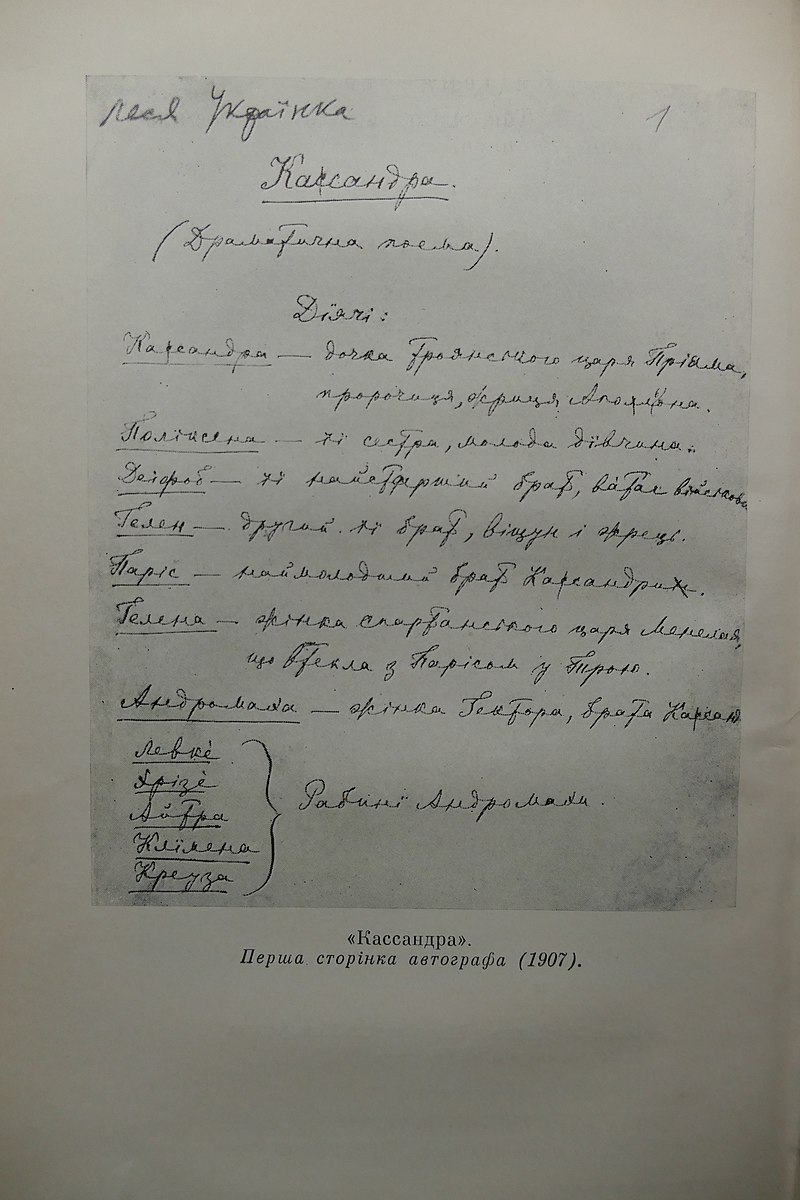 Леся Українка
1
Кассандра.
(Драматична поема).
Діячі:
Кассандра — дочка троянського царя Пріяма,
пророчиця, жриця Аполлона.
Поліксена — її сестра, молода дівчина.
Деіфоб — її найстарший брат, ватаг військовий
Гелен — другий її брат, віщун і жрець.
Паріс — наймолодший брат Кассандри.
Гелена — жінка спартанського царя Менелая,
що втекла з Парісом у Трою.
Андромаха — жінка Гектора, брата Кассанд
Левкé
Хрізé
Айтра
Клімена
Креуза
Рабині Андромахи.
«Кассандра».
Перша сторінка автографа (1907).